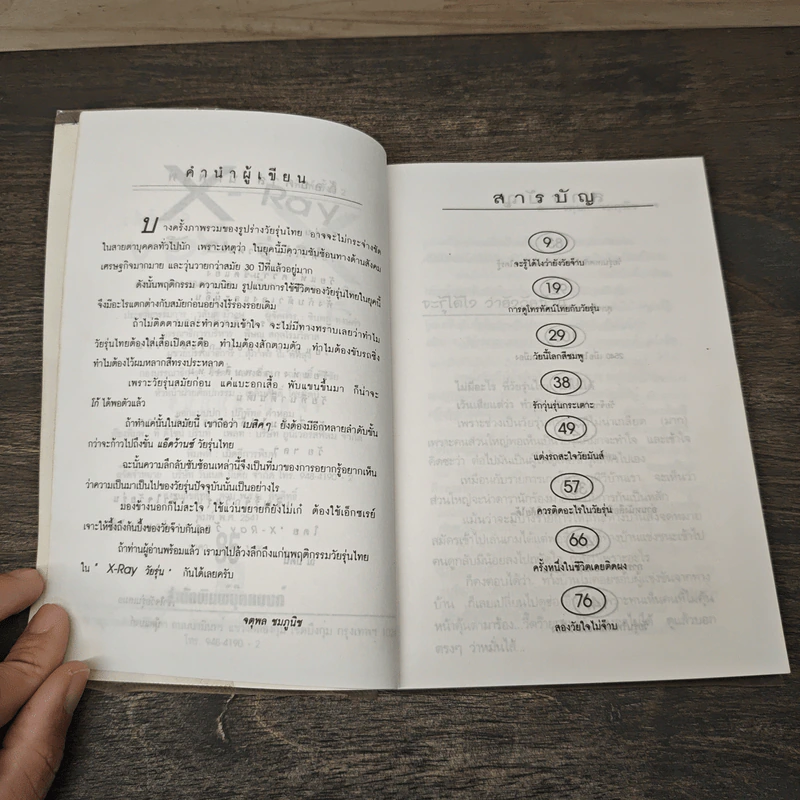 คำนำผู้เขียน
บางครั้งภาพรวมของรูปร่างวัยรุ่นไทย อาจจะไม่กระจ่างชัด
ในสายตาบุคคลทั่วไปนัก เพราะเหตุว่า ในยุคนี้มีความซับซ้อนทางด้านสังคม
เศรษฐกิจมากมาย และวุ่นวายกว่าสมัย 30 ปีที่แล้วอยู่มาก
ดังนั้นพฤติกรรม ความนิยม รูปแบบการใช้ชีวิตของวัยรุ่นไทยในยุคนี้
จึงมีอะไรแตกต่างกับสมัยก่อนอย่างไร้ร่องรอยเดิม
ถ้าไม่ติดตามและทำความเข้าใจ จะไม่มีทางทราบเลยว่าทำไม
วัยรุ่นไทยต้องใส่เสื้อเปิดสะดือ ทำไมต้องสักตามตัว ทำไมต้องขับรถซิ่ง
ทำไมต้องไว้ผมหลากสีทรงประหลาด
เพราะวัยรุ่นสมัยก่อน แค่แบะอกเสื้อ พับแขนขึ้นมา ก็น่าจะ
โก้ ได้พอตัวแล้ว
ถ้าทำแค่นั้นในสมัยนี้ เขาถือว่า เบสิคๆ ยังต้องมีอีกหลายลำดับขั้น
กว่าจะก้าวไปถึงขั้น แอ็ดว้านซ์ วัยรุ่นไทย
ฉะนั้นความลึกลับซับซ้อนเหล่านี้จึงเป็นที่มาของการอยากรู้อยากเห็น
ว่าความเป็นมาเป็นไปของวัยรุ่นปัจจุบันนั้นเป็นอย่างไร
มองข้างนอกก็ไม่สะใจ ใช้แว่นขยายก็ยังไม่เก๋ ต้องใช้เอ็กซเรย์
เจาะให้ซึ้งถึงก้นบึ้งของวัยจ๊าบกันไปเลย
ถ้าท่านผู้อ่านพร้อมแล้ว เรามาไปล้วงลึกถึงแก่นพฤติกรรมวัยรุ่นไทย
ใน " X-Ray วัยรุ่น " กันได้เลยครับ
จตุพล ชมภูนิช
สารบัญ
9
จะรู้ได้ไงว่ายังวัยจ๊าบ
19
การดูโทรทัศน์ไทยกับวัยรุ่น
29
วัยนี้โลกสีชมพู
38
รักวุ่นรุ่นกระเตาะ
49
แต่งรถสะใจวัยมันส์
57
ควรคิดอะไรในวัยรุ่น
66
ครั้งหนึ่งในชีวิตเคยติดผง
76
สองวัยใจไม่จ๊าบ